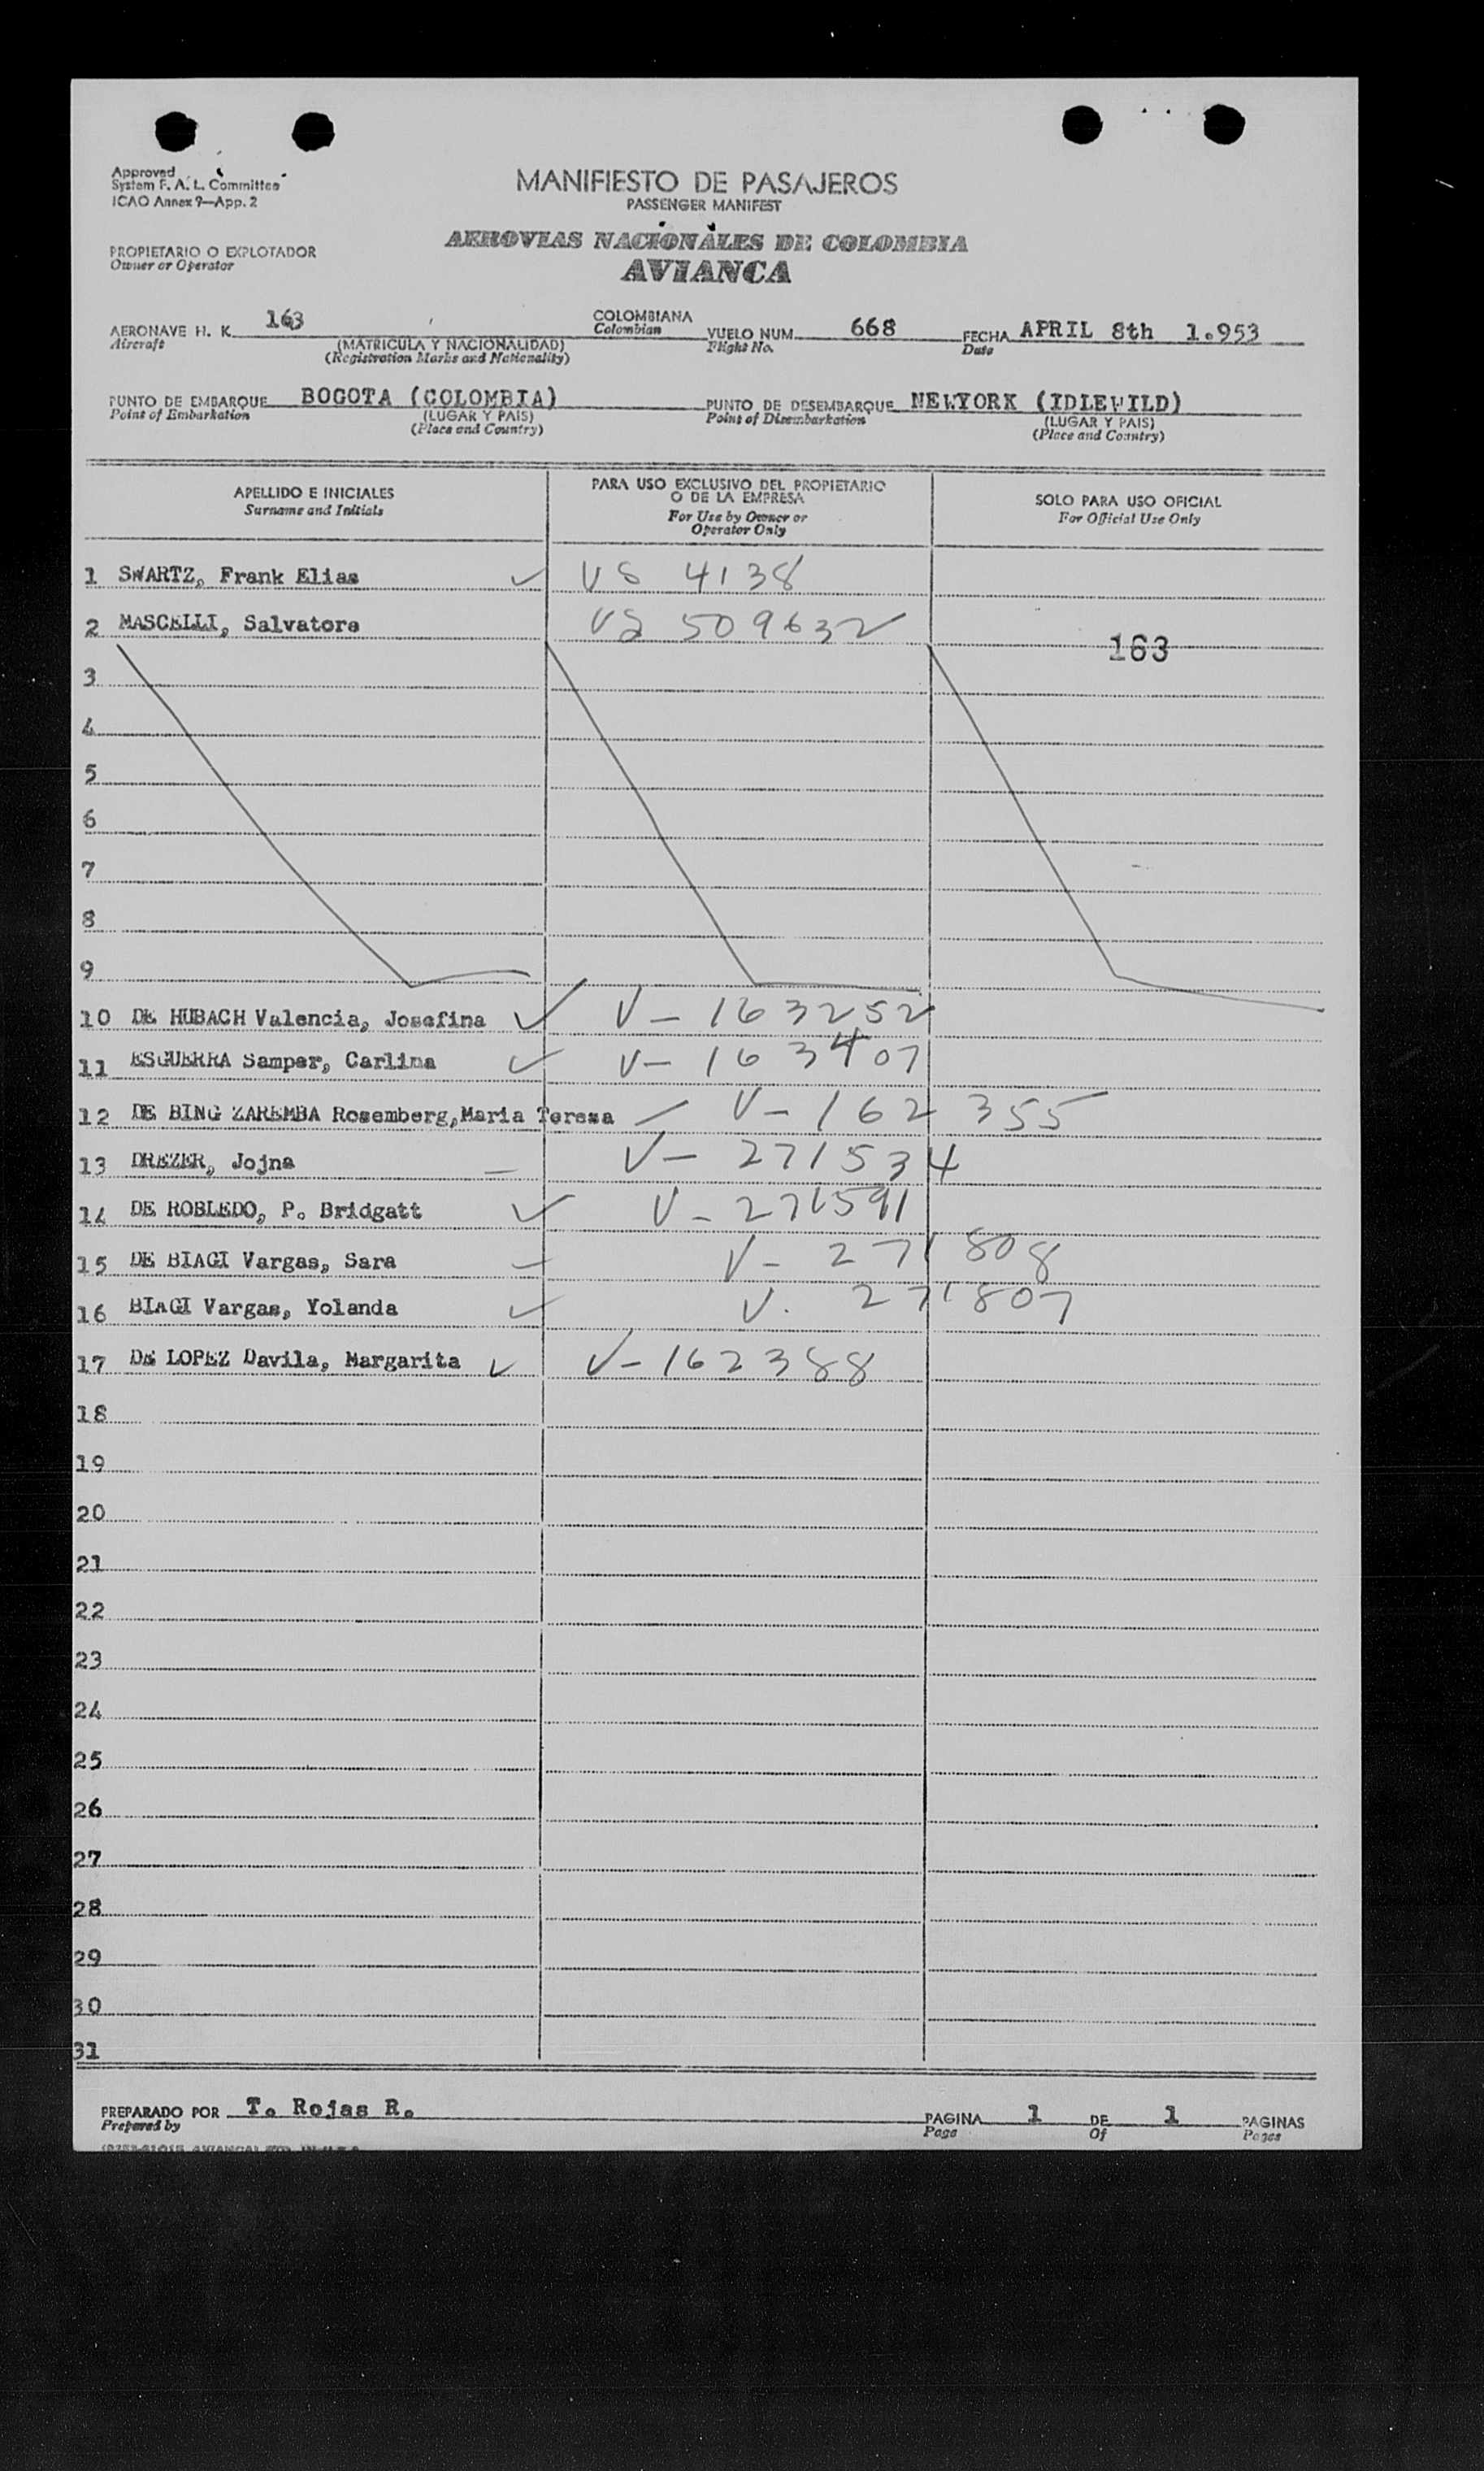 Approved
System F. A. L. Committee
ICAO Annex 9—App. 2
MANIFIESTO DE PASAJEROS
PASSENGER MANIFEST
PROPIETARIO O EXPLOTADOR
Owner or Operator
AEROVIAS NACIONALES DE COLOMBIA
AVIANCA
AERONAVE H. K. 163 COLOMBIANA VUELO NUM. 668 FECHA APRIL 8th 1.953
Aircraft (MATRICULA Y NACIONALIDAD) Colombian Flight No. Date
(Registration Marks and Nationality)
PUNTO DE EMBARQUE BOGOTA (COLOMBIA) PUNTO DE DESEMBARQUE NEWYORK (IDLEWILD)
Point of Embarkation (LUGAR Y PAIS) Point of Disembarkation (LUGAR Y PAIS)
(Place and Country) (Place and Country)
APELLIDO E INICIALES
Surname and Initials
PARA USO EXCLUSIVO DEL PROPIETARIO
O DE LA EMPRESA
For Use by Owner or
Operator Only
SOLO PARA USO OFICIAL
For Official Use Only
1 SWARTZ, Frank Elias ✓ US 4138
2 MASCELLI, Salvatore US 509632
163
3
4
5
6
7
8
9
10 DE HUBACH Valencia, Josefina ✓ V - 163252
11 ESGUERRA Samper, Carlina ✓ V - 163407
12 DE BING ZAREMBA Rosemberg,Maria Teresa V - 162355
13 DREZER, Jojna V - 271534
14 DE ROBLEDO, P. Bridgatt ✓ V - 271591
15 DE BIAGI Vargas, Sara V - 271808
16 BIAGI Vargas, Yolanda ✓ V. 271807
17 DE LOPEZ Davila, Margarita ✓ V - 162388
18
19
20
21
22
23
24
25
26
27
28
29
30
31
PREPARADO POR T. Rojas R. PAGINA 1 DE 1 PAGINAS
Prepared by Page Of Pages